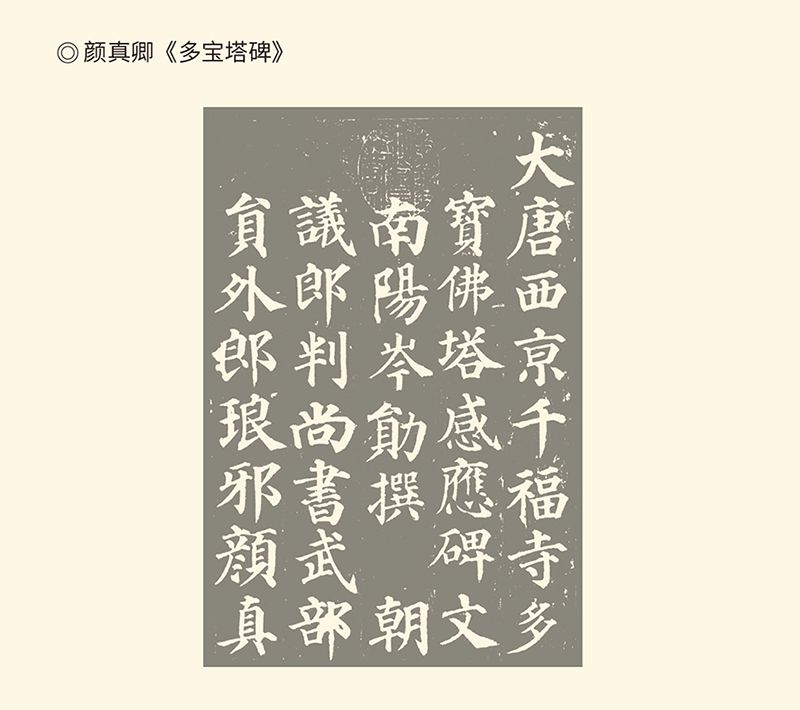 ◎ 颜真卿《多宝塔碑》
大唐西京千福寺多
寶佛塔感應碑文
南陽岑勛撰 朝
議郎判尚書武部
員外郎琅邪顏真